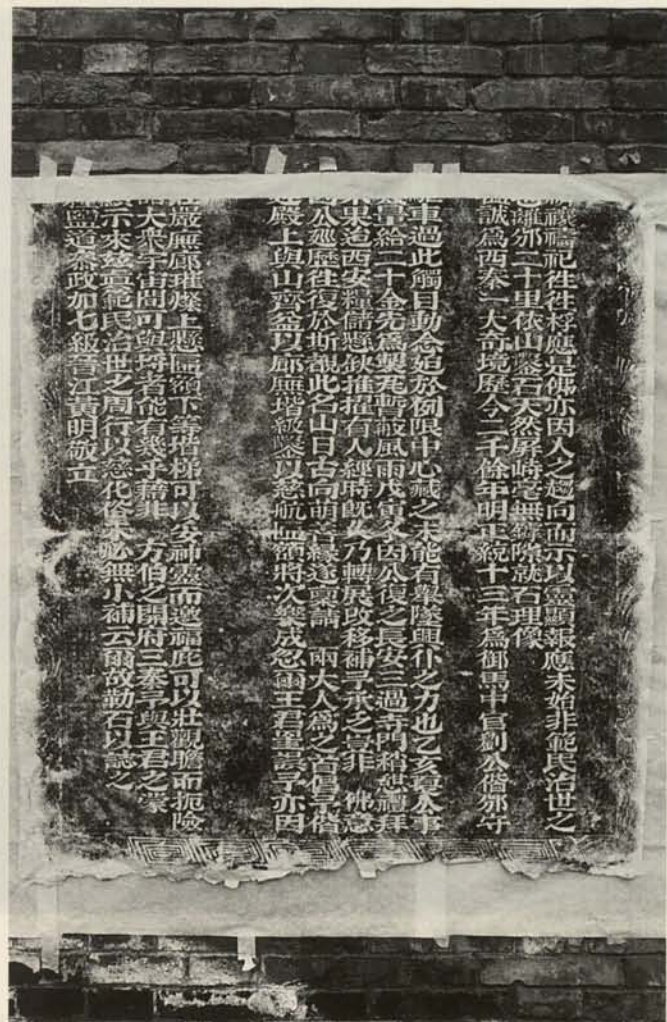 禳禱祀徃徃桴應是佛亦因人之趨向而示以靈顯報應未始非範民治世之
也離邠二十里依山鑿石天然屏峙毫無罅隙就石理像
誠爲西秦一大奇境歷今二千餘年明正統十三年爲御馬中官劉公偕邠守
車過此觸目動念迫於例限中心藏之未能有舉墜興仆之力也乙亥夏公事
量給二十金先爲製瓦暫蔽風雨戊寅冬因公復之長安三過寺門稽愆禮拜
東追西安糧儲懸缺推擢有人經時旣久乃轉展改移補予承乏豈非 佛意
公廵歷徃復於斯覩此名山日古向萌善緣遂稟請 兩大人爲之首倡予偕
嚴上與山齊益以廊廡堦級鑿以慈航匾額將次樂成忽爾王君逢誤予亦因
嚴廡廊璀璨上懸匾額下等堦梯可以妥神靈而邀福庇可以壯觀瞻而扼險
大衆宇宙間可與埒者能有幾乎藉非 方伯之開府三秦予與王君之
示來茲眞範民治世之周行以慈化俗未必無小補云爾故勒石以誌之
鹽道叅政加七級晋江黃明敬立